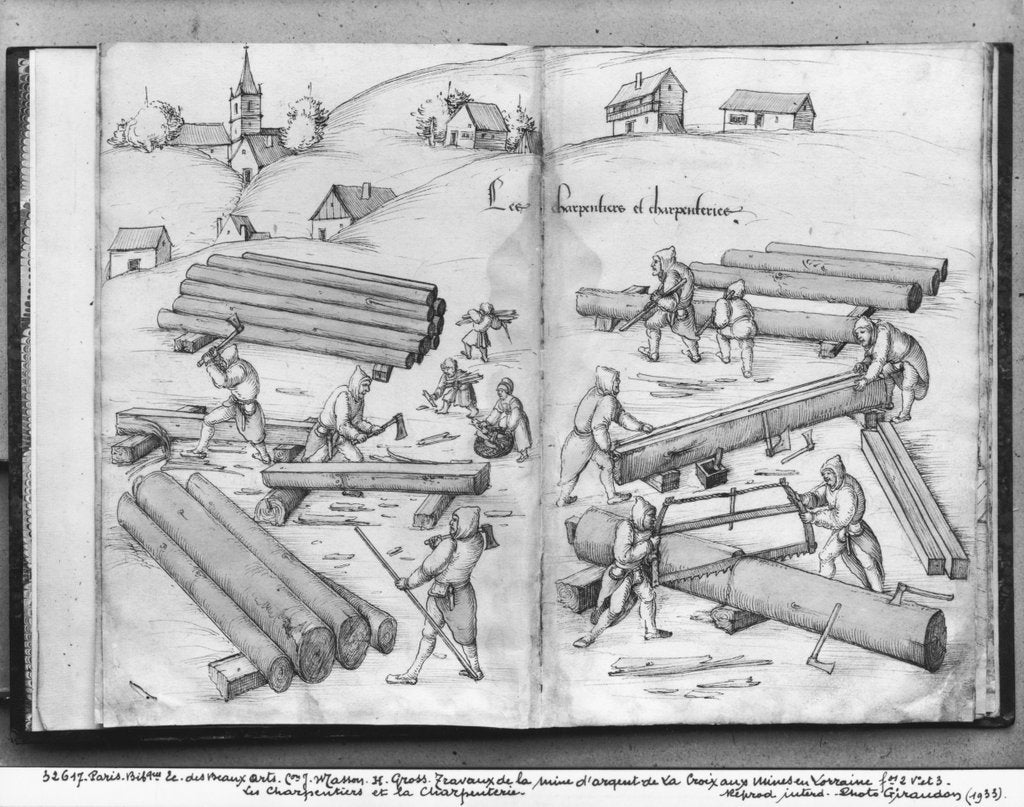 Les charpentiers et charpenteries.
32617. Paris. Bibque Ec. des Beaux Arts. Con J. Masson. H. Gross. Travaux de la mine d'argent de La Croix aux Mines en Lorraine fos 2 vo et 3.
Les Charpentiers et la Charpenterie
Reprod interd. Photo Giraudon (1933).